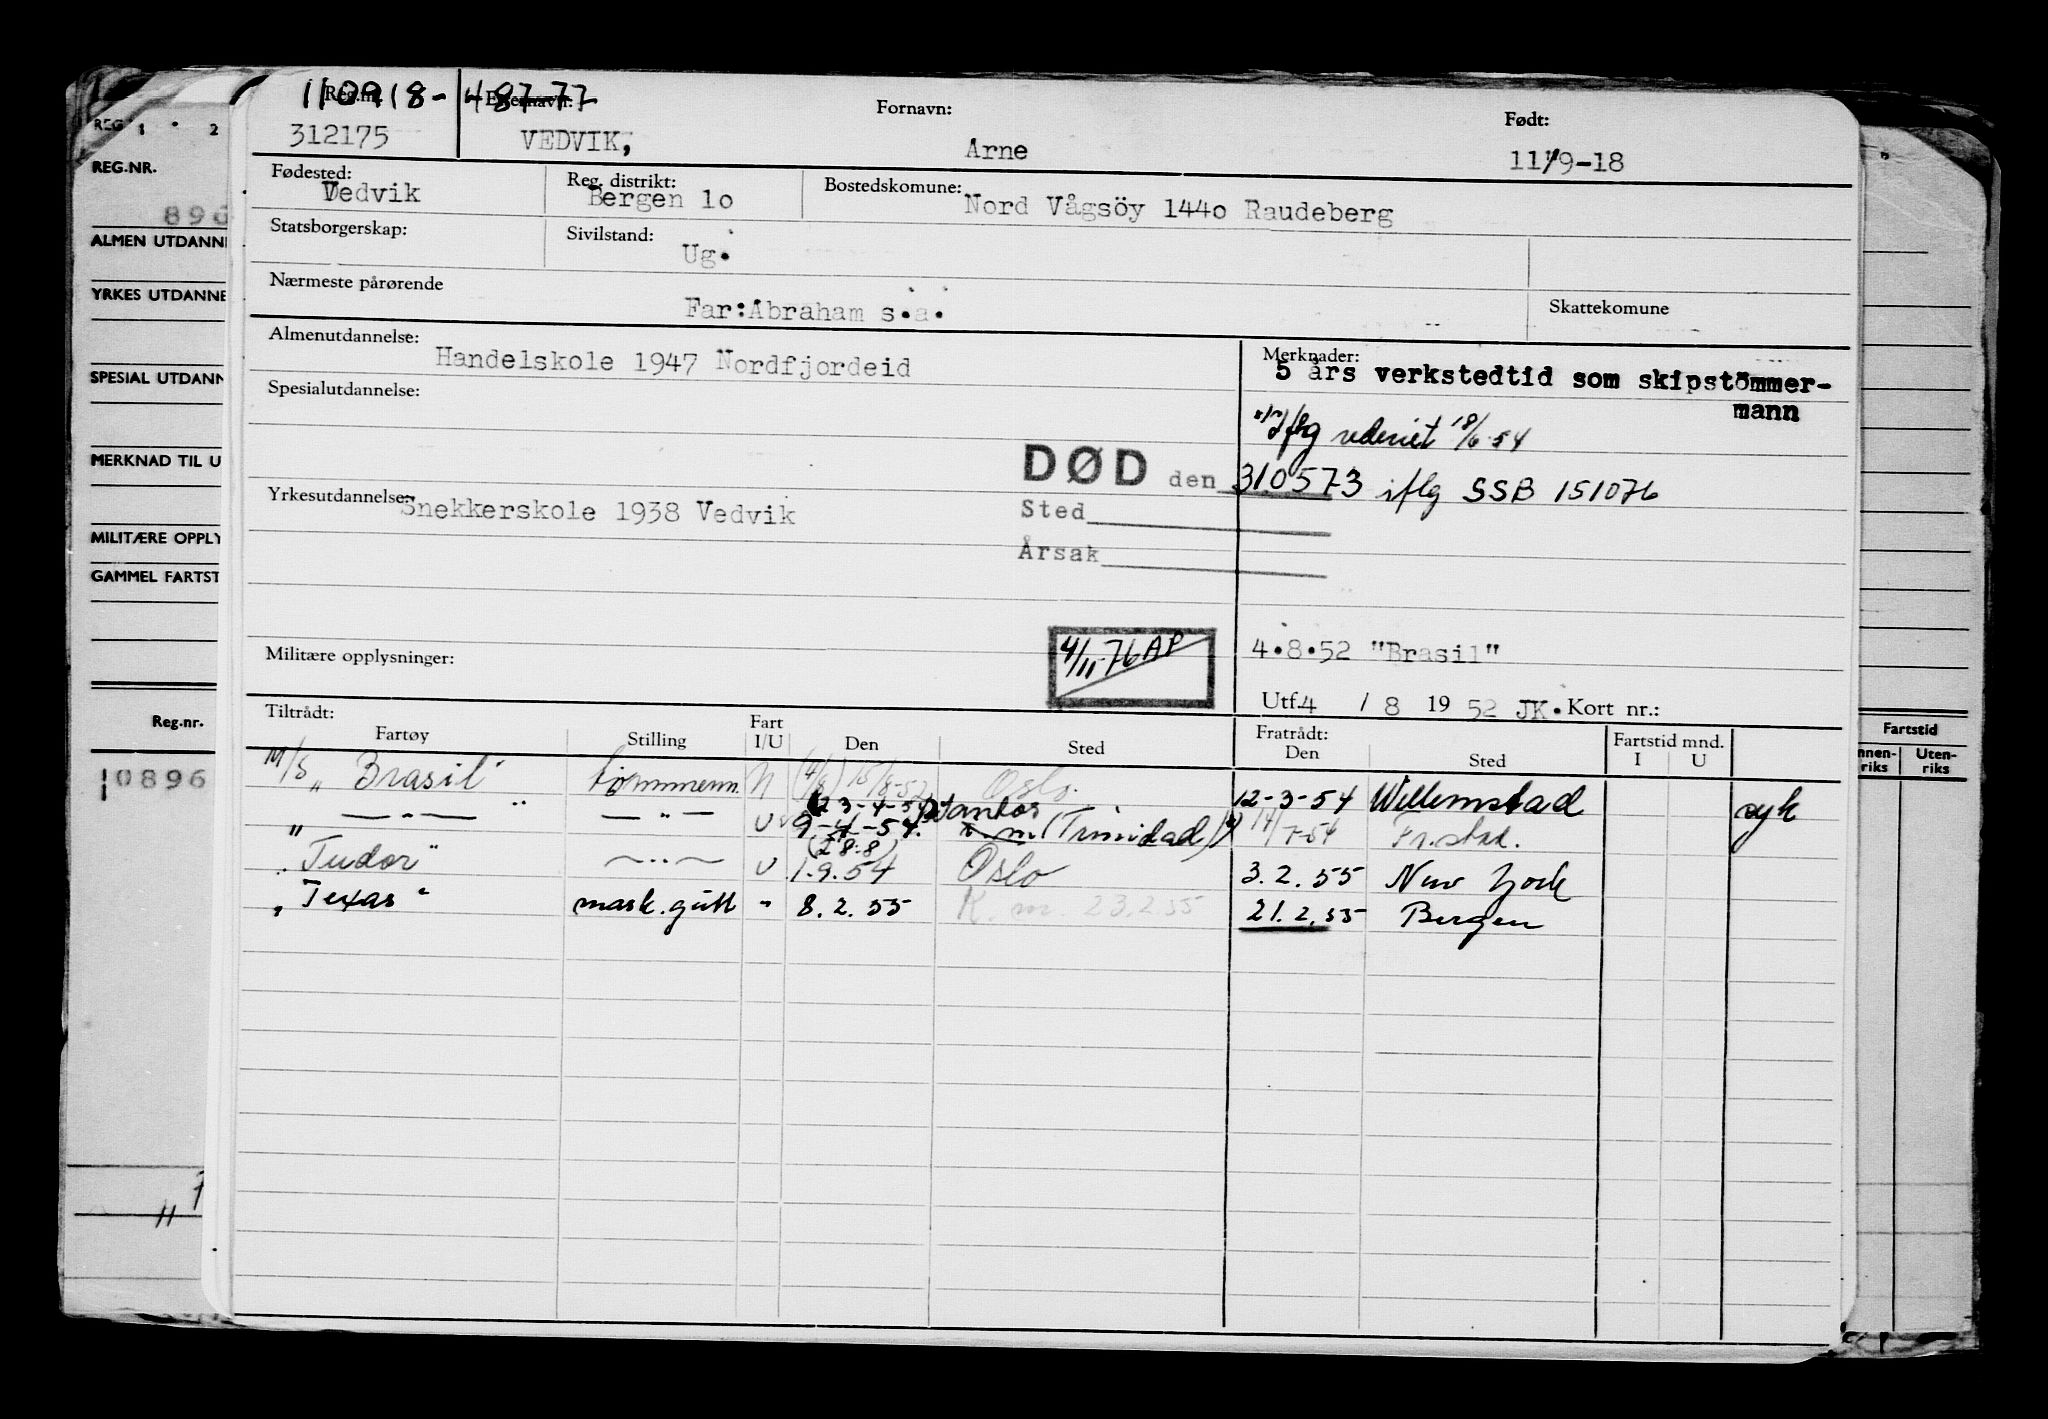 110918-48777
Reg.nr. Etternavn: Fornavn: Født:
312175 VEDVIK, Arne 11/9-18
Fødested: Reg. distrikt: Bostedskomune:
Vedvik Bergen 1o Nord Vågsöy 144o Raudeberg
Statsborgerskap: Sivilstand:
Ug.
Nærmeste pårørende Skattekomune
Far:Abraham s.a.
Almenutdannelse: Merknader:
Handelskole 1947 Nordfjordeid 5 års verkstedtid som skipstömmer-
mann
Spesialutdannelse:
iflg rederiet 18/6-54
DØD den 310573 iflg SSB 151076
Yrkesutdannelse:
Snekkerskole 1938 Vedvik
Sted
Årsak
Militære opplysninger: 4/11-76 AP 4.8.52 "Brasil"
Utf.4 / 8 19 52 JK. Kort nr.:
Tiltrådt: Fratrådt: Fartstid mnd.
Fartøy Stilling Fart I/U Den Sted Den Sted I U
M/S "Brasil" tømmerm. (4/8) 15/8-52 Oslo. 12-3-54 Willemstad syk
" — " — " — " — U (23-4-54) Santos
9-4-54. (Trinidad) 14/7-54 Fr.stad.
(28.8)
"Tudor" — " — U 1.9.54 Oslo 3.2.55 New York
"Texas" mask.gutt " 8.2.55 K.m. 23.2.55 21.2.55 Bergen
REG 1 2
REG.NR.
896
ALMEN UTDANNE
YRKES UTDANNE
SPESIAL UTDANN
MERKNAD TIL U
MILITÆRE OPPLY
GAMMEL FARTST
Reg.nr.
10896
Fartstid
nnen-riks Uten-riks